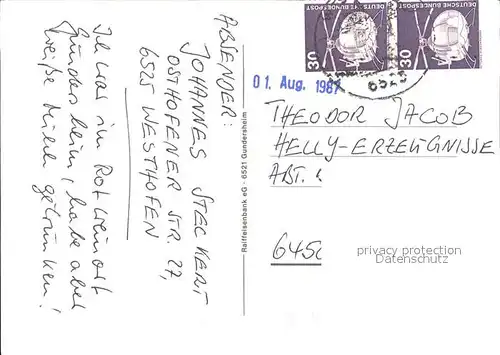 Ich war im Rotweinort
Gundersheim, habe aber
weiße Milch getrunken!
ABSENDER:
JOHANNES STECKERT
OSTHOFENER STR. 27,
6525 WESTHOFEN
Raiffeisenbank eG - 6521 Gundersheim
DEUTSCHE BUNDESPOST
30
DEUTSCHE BUNDESPOST
30
6525
01. Aug. 1987
THEODOR JACOB
HELLY-ERZEUGNISSE
ABT.
6450
privacy protection
Datenschutz